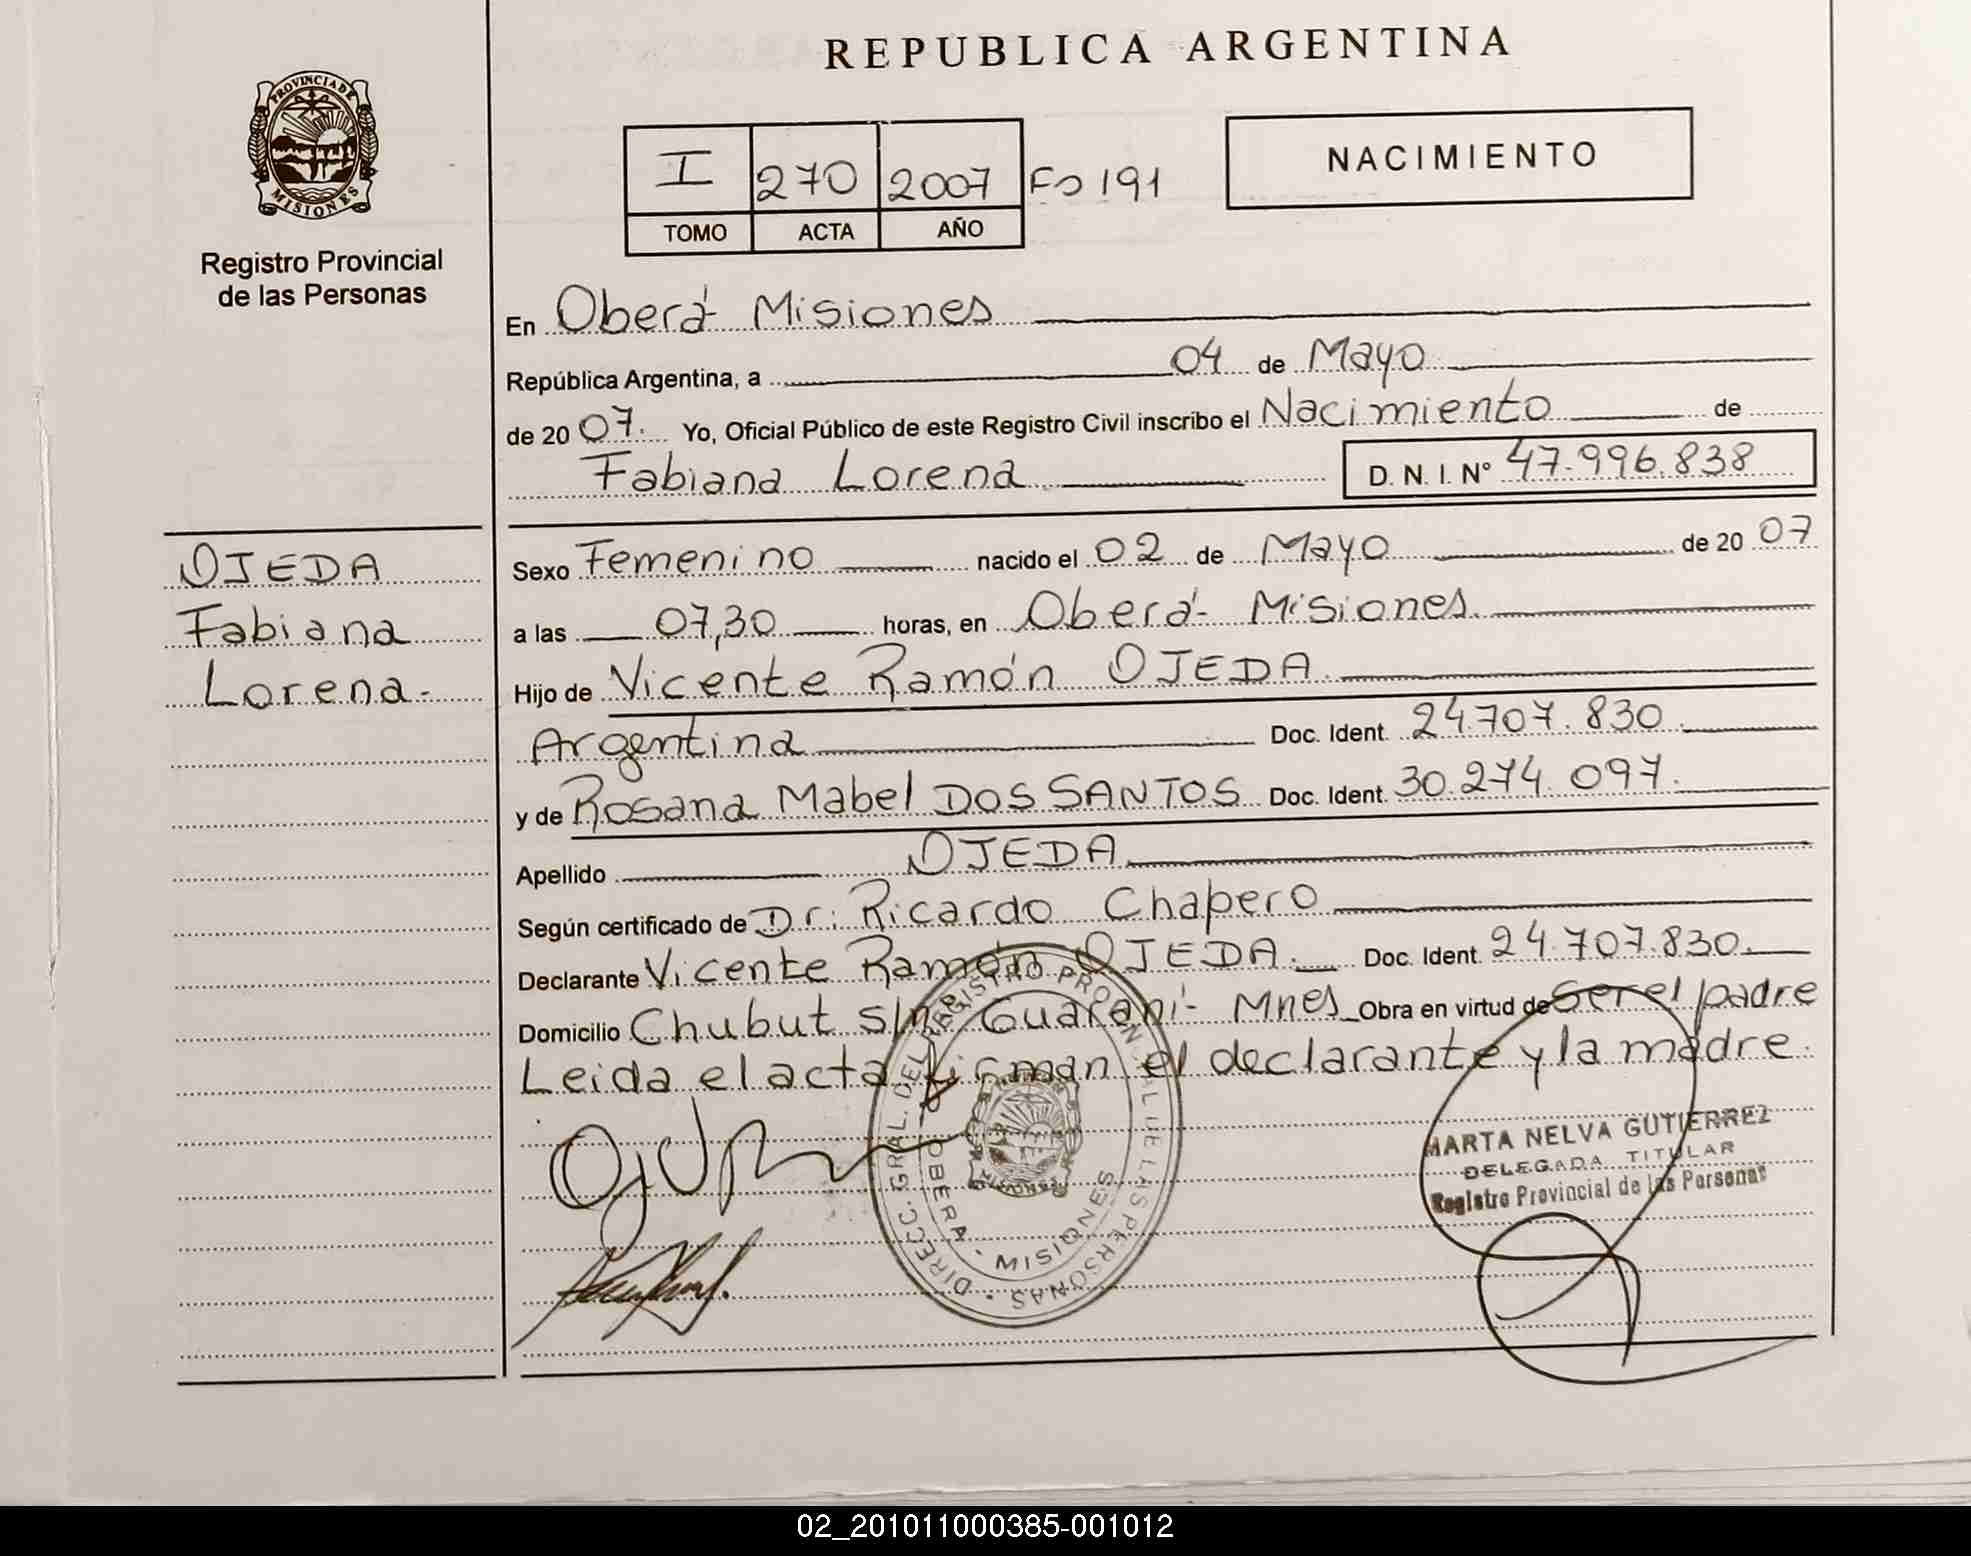 REPUBLICA ARGENTINA
PROVINCIA DE
MISIONES
Registro Provincial
de las Personas
I 270 2007 Fo 191
TOMO ACTA AÑO
NACIMIENTO
En Oberá Misiones
República Argentina, a 04 de Mayo
de 20 07. Yo, Oficial Público de este Registro Civil inscribo el Nacimiento de
Fabiana Lorena D. N. I. N° 47.996.838
OJEDA
Fabiana
Lorena.-
Sexo Femenino nacido el 02 de Mayo de 20 07
a las 07,30 horas, en Oberá- Misiones.
Hijo de Vicente Ramón OJEDA.
Argentina Doc. Ident. 24.707.830.
y de Rosana Mabel DOS SANTOS Doc. Ident. 30.274.097.
Apellido OJEDA
Según certificado de Dr: Ricardo Chapero
Declarante Vicente Ramón OJEDA. Doc. Ident. 24.707.830.
Domicilio Chubut s/nº Guaraní- Mnes Obra en virtud de Ser el padre
Leida el acta firman el declarante y la madre.
DIRECC. GRAL. DEL REGISTRO PROVINCIAL DE LAS PERSONAS
OBERA - MISIONES
MARTA NELVA GUTIERREZ
DELEGADA TITULAR
Registro Provincial de las Personas
02_201011000385-001012